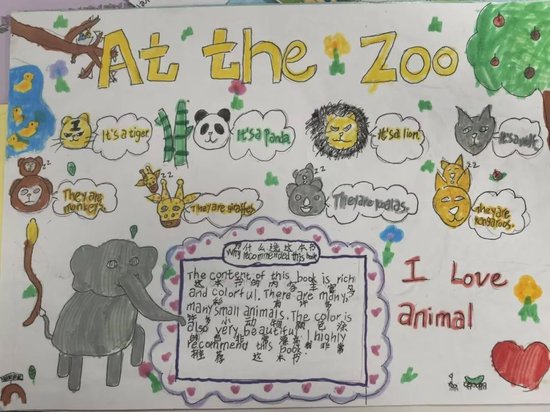 At the Zoo
It's a tiger
It's a panda.
It's a lion.
It's a wolf.
They are monkeys.
They are giraffes.
They are koalas.
They are kangaroos.
为什么选这本书
Why recommended this book
The content of this book is rich
这本书的内容丰富多
and colorful. There are many,
many small animals. The color is
also very beautiful. I highly
recommend this book
推荐这本书
I Love
animal